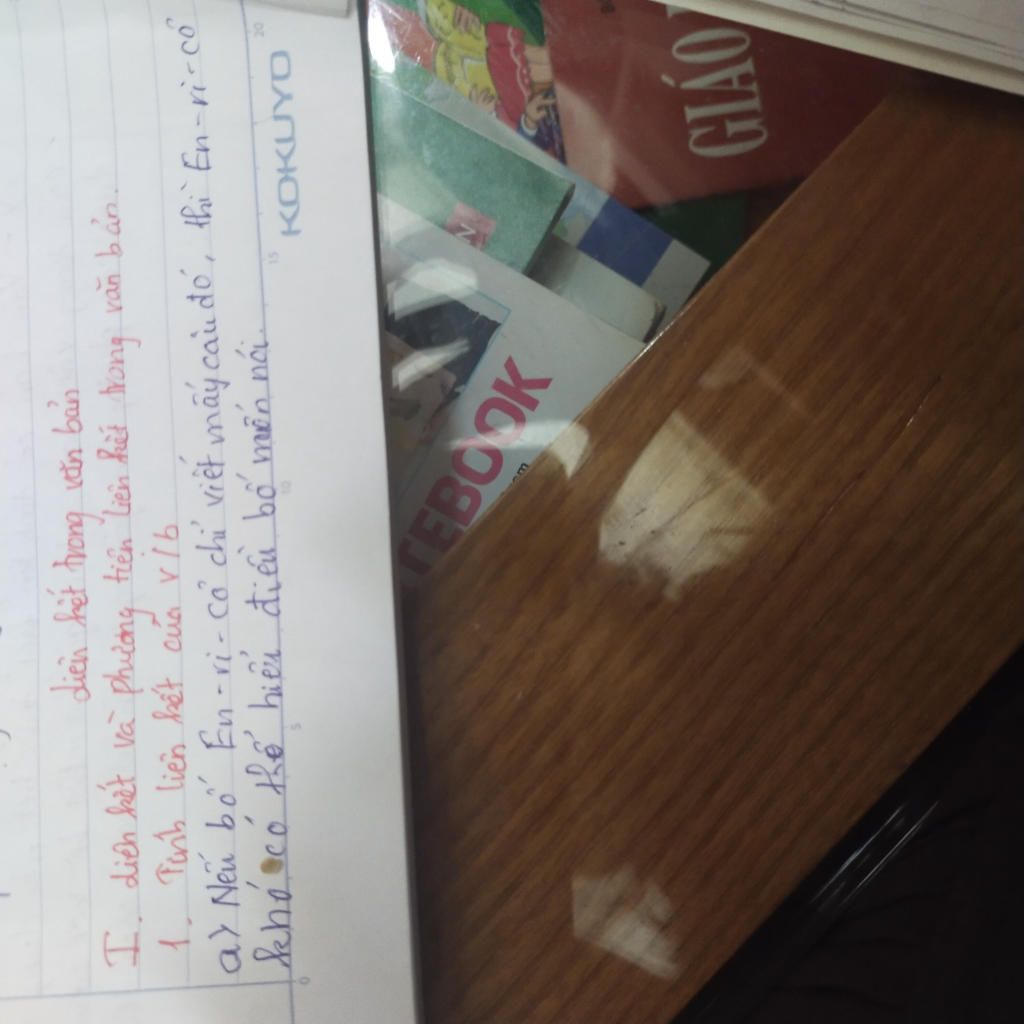 Liên kết trong văn bản
I. Liên kết và phương tiến liên kết trong văn bản.
1. Tính liên kết của v/b
a) Nếu bố En-ri-cô chỉ viết mấy câu đó, thì En-ri-cô
khó có thể hiểu điều bố muốn nói.
0 5 10 15 20
KOKUYO
GIÁO
TEBOOK
om